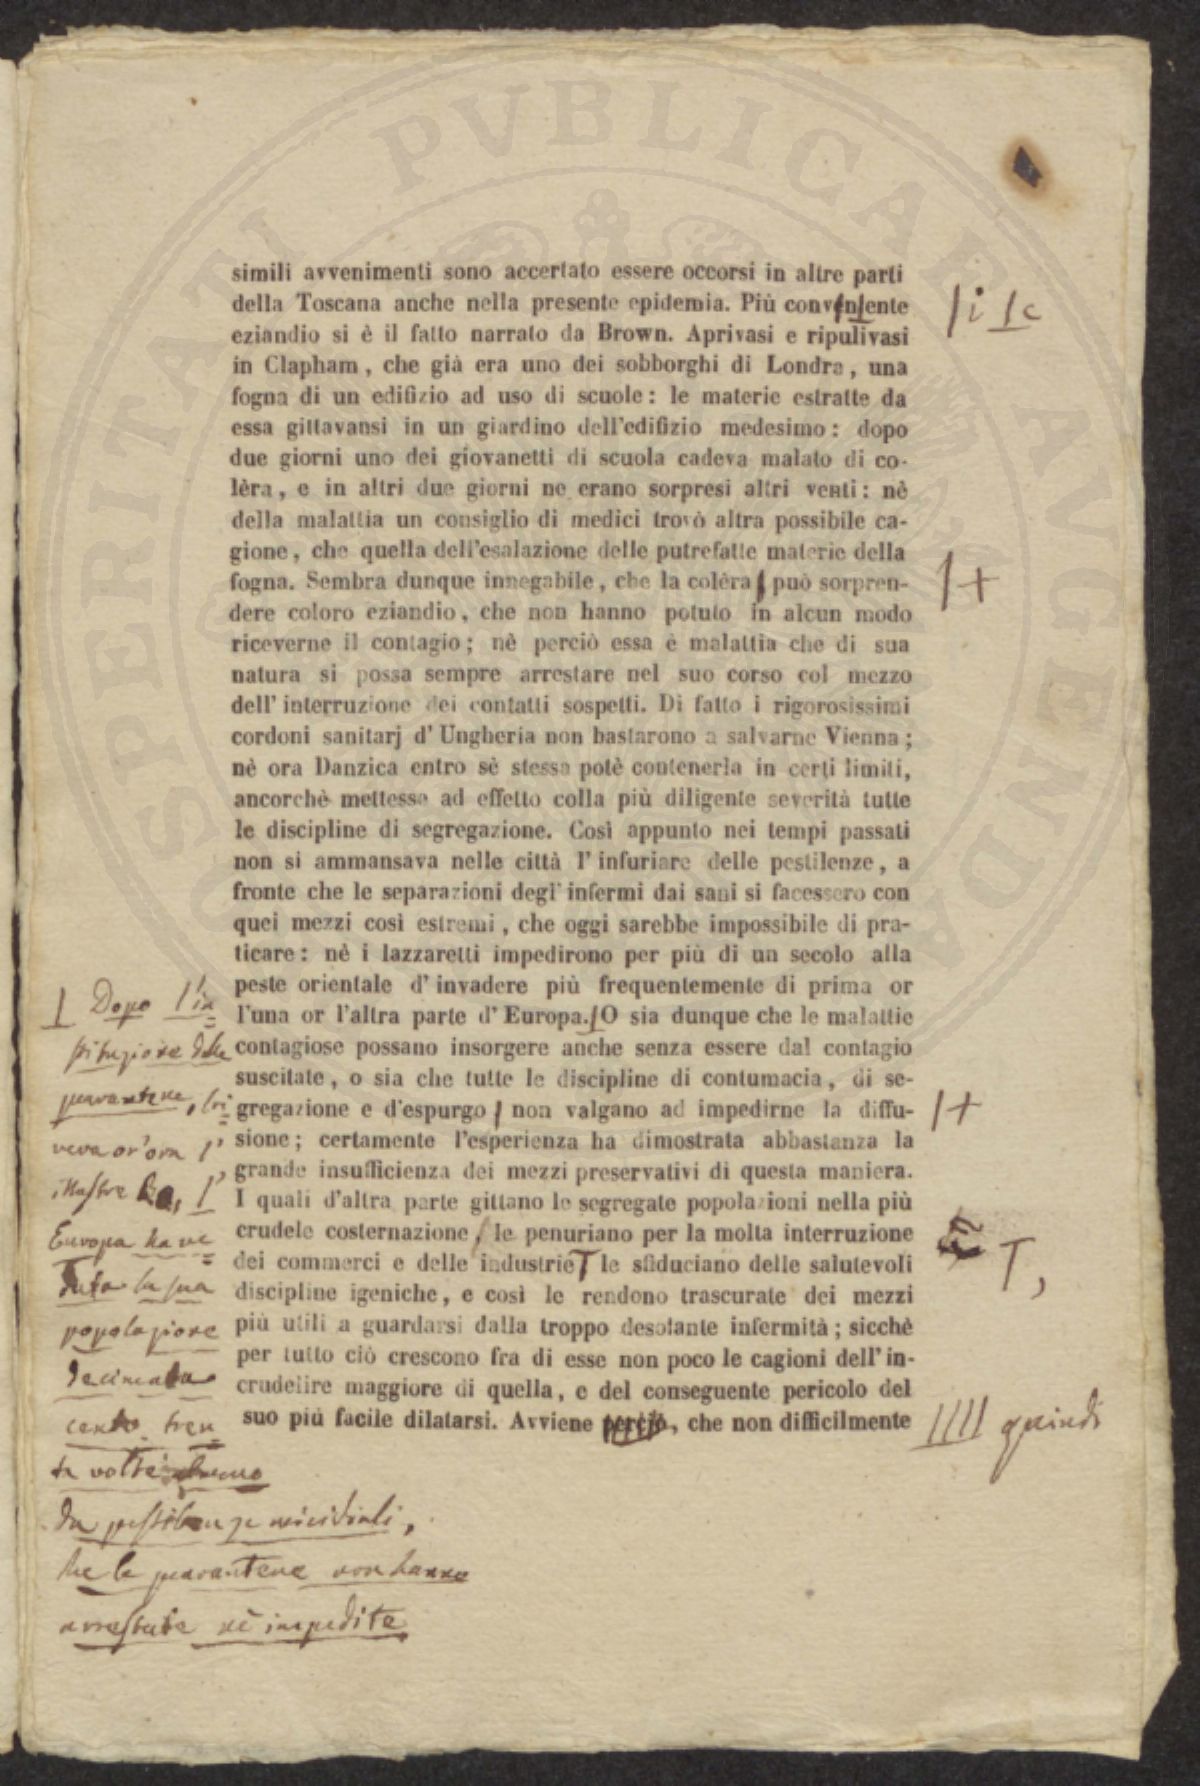 SPERITATI PVBLICAE AVGENDA
simili avvenimenti sono accertato essere occorsi in altre parti
della Toscana anche nella presente epidemia. Più conveniente
eziandio si è il fatto narrato da Brown. Aprivasi e ripulivasi
in Clapham, che già era uno dei sobborghi di Londra, una
fogna di un edifizio ad uso di scuole: le materie estratte da
essa gittavansi in un giardino dell'edifizio medesimo: dopo
due giorni uno dei giovanetti di scuola cadeva malato di co-
lèra, e in altri due giorni ne erano sorpresi altri venti: nè
della malattia un consiglio di medici trovò altra possibile ca-
gione, che quella dell'esalazione delle putrefatte materie della
fogna. Sembra dunque innegabile, che la colèra può sorpren-
dere coloro eziandio, che non hanno potuto in alcun modo
riceverne il contagio; nè perciò essa è malattia che di sua
natura si possa sempre arrestare nel suo corso col mezzo
dell' interruzione dei contatti sospetti. Di fatto i rigorosissimi
cordoni sanitarj d' Ungheria non bastarono a salvarne Vienna;
nè ora Danzica entro sè stessa potè contenerla in certi limiti,
ancorchè mettesse ad effetto colla più diligente severità tutte
le discipline di segregazione. Così appunto nei tempi passati
non si ammansava nelle città l' infuriare delle pestilenze, a
fronte che le separazioni degl' infermi dai sani si facessero con
quei mezzi così estremi, che oggi sarebbe impossibile di pra-
ticare: nè i lazzaretti impedirono per più di un secolo alla
peste orientale d' invadere più frequentemente di prima or
l'una or l'altra parte d' Europa. O sia dunque che le malattie
contagiose possano insorgere anche senza essere dal contagio
suscitate, o sia che tutte le discipline di contumacia, di se-
gregazione e d'espurgo non valgano ad impedirne la diffu-
sione; certamente l'esperienza ha dimostrata abbastanza la
grande insufficienza dei mezzi preservativi di questa maniera.
I quali d'altra parte gittano le segregate popolazioni nella più
crudele costernazione, le penuriano per la molta interruzione
dei commerci e delle industrie le sfiduciano delle salutevoli
discipline igeniche, e così le rendono trascurate dei mezzi
più utili a guardarsi dalla troppo desolante infermità; sicchè
per tutto ciò crescono fra di esse non poco le cagioni dell' in-
crudelire maggiore di quella, e del conseguente pericolo del
suo più facile dilatarsi. Avviene perciò, che non difficilmente
i c
quindi
Dopo l'in
stituzione delle
quarantene, scri
veva or'ora l'
illustre
Europa ha ve
duta la sua
popolazione
decimata
cento tren
ta volte
da pestilenze micidiali,
che le quarantene non hanno
arrestate nè impedite